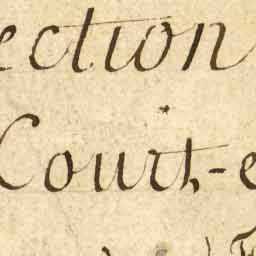 ection
Court,-e